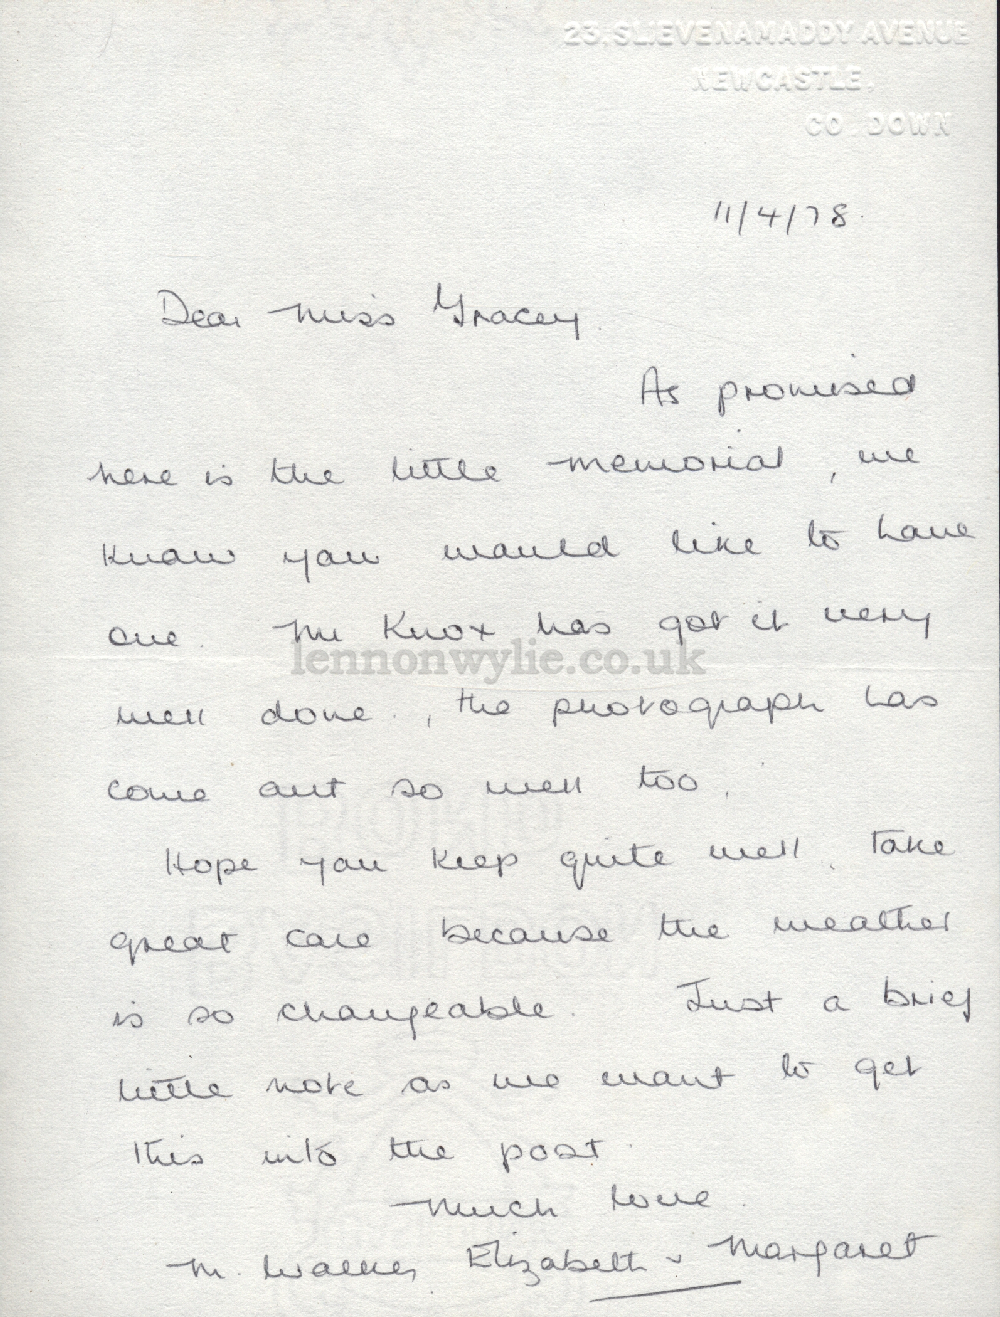 23, SLIEVENAMADDY AVENUE
NEWCASTLE,
CO. DOWN
11/4/78.
Dear Miss Gracey.
As promised
here is the little memorial, we
know you would like to have
one. Mr Knox has got it very
lennonwylie.co.uk
well done., the photograph has
come out so well too.
Hope you keep quite well. Take
great care because the weather
is so changeable. Just a brief
little note as we want to get
this into the post.
Much love.
M. Walker, Elizabeth & Margaret